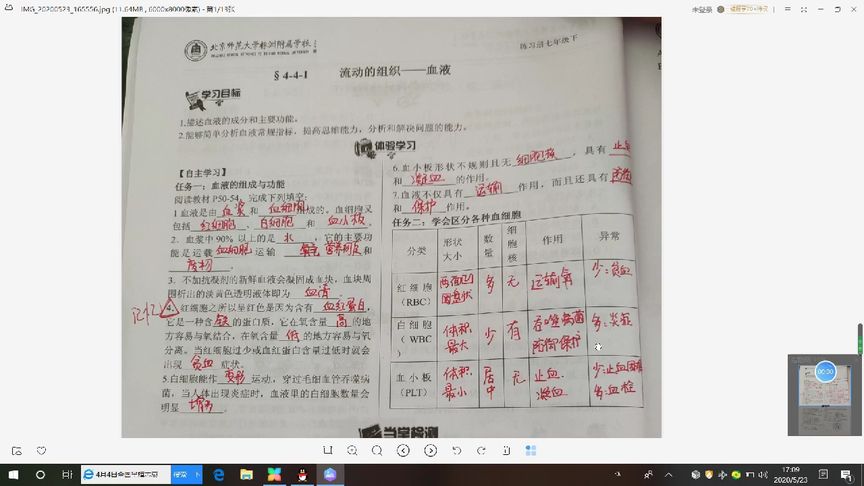 IMG_20200523_165556.jpg (11.64MB , 6000x8000像素) - 第1/13张
未登录
北京师范大学株洲附属学校
练习册七年级下
§ 4-4-1 流动的组织——血液
学习目标
1.描述血液的成分和主要功能。
2.能够简单分析血液常规指标，提高思维能力，分析和解决问题的能力。
体验学习
【自主学习】
任务一：血液的组成与功能
阅读教材 P50-54，完成下列填空：
1.血液是由 血浆 和 血细胞 组成的。血细胞又
包括 红细胞 、 白细胞 和 血小板 。
2. 血浆中 90% 以上的是 水 ，它的主要功
能是运载 血细胞 运输 营养物质和
废物 。
3. 不加抗凝剂的新鲜血液会凝固成血块，血块周
围析出的淡黄色透明液体即为 血清 。
记忆
4. 红细胞之所以呈红色是因为含有 血红蛋白，
它是一种含 铁 的蛋白质，它在氧含量 高 的地
方容易与氧结合，在氧含量 低 的地方容易与氧
分离。当红细胞过少或血红蛋白含量过低时就会
出现 贫血 症状。
5.白细胞能作 变形 运动，穿过毛细血管吞噬病
菌，当人体出现炎症时，血液里的白细胞数量会
明显 增多 。
6.血小板形状不规则且无 细胞核 ，具有 止血
和 凝血 的作用。
7.血液不仅具有 运输 作用，而且还具有 防御
和 保护 作用。
任务二：学会区分各种血细胞
分类 形状大小 数量 细胞核 作用 异常
红细胞（RBC） 两面凹圆盘状 多 无 运输氧 少：贫血
白细胞（WBC） 体积最大 少 有 吞噬病菌 防御保护 多：炎症
血小板（PLT） 体积最小 居中 无 止血 凝血 少：止血困难 多：血栓
当堂检测
00:00
搜索
17:09
2020/5/23